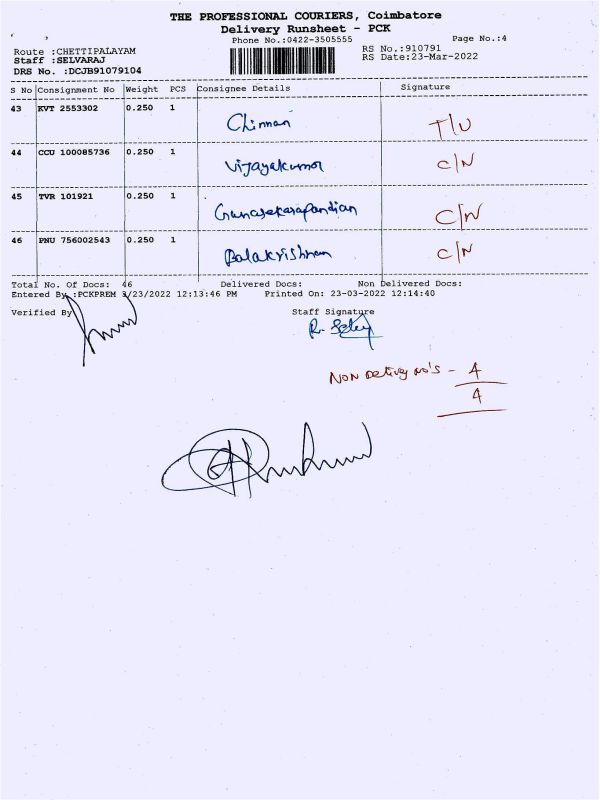 THE PROFESSIONAL COURIERS, Coimbatore
Delivery Runsheet - PCK
Phone No.:0422-3505555
Page No.:4
Route :CHETTIPALAYAM
RS No.:910791
Staff :SELVARAJ
RS Date:23-Mar-2022
DRS No. :DCJB91079104
S No Consignment No Weight PCS Consignee Details Signature
43 KVT 2553302 0.250 1 Chinnan T/U
44 CCU 100085736 0.250 1 Vijayakumar C/N
45 TVR 101921 0.250 1 Gunasekarapandian C/N
46 PNU 756002543 0.250 1 Balakrishnan C/N
Total No. Of Docs: 46 Delivered Docs: Non Delivered Docs:
Entered By :PCKPREM 3/23/2022 12:13:46 PM Printed On: 23-03-2022 12:14:40
Verified By
Staff Signature
NON Delivery No's - 4
4